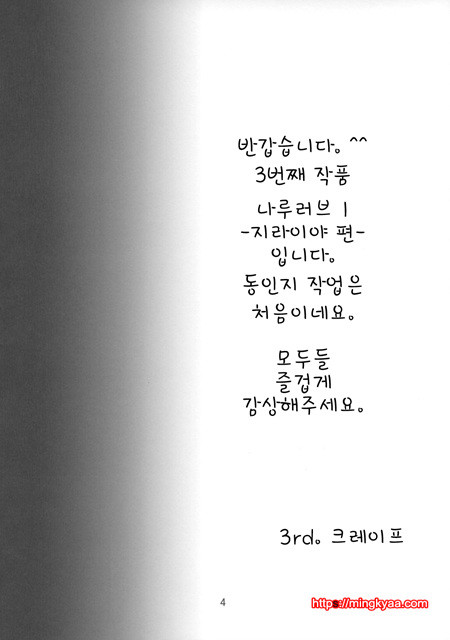 반갑습니다. ^^
3번째 작풍
나루러브 1
-지라이야 편-
입니다.
동인지 작업은
처음이네요.
모두들
즐겁게
감상해주세요.
3rd. 크레이프
4
https://mingkyaa.com